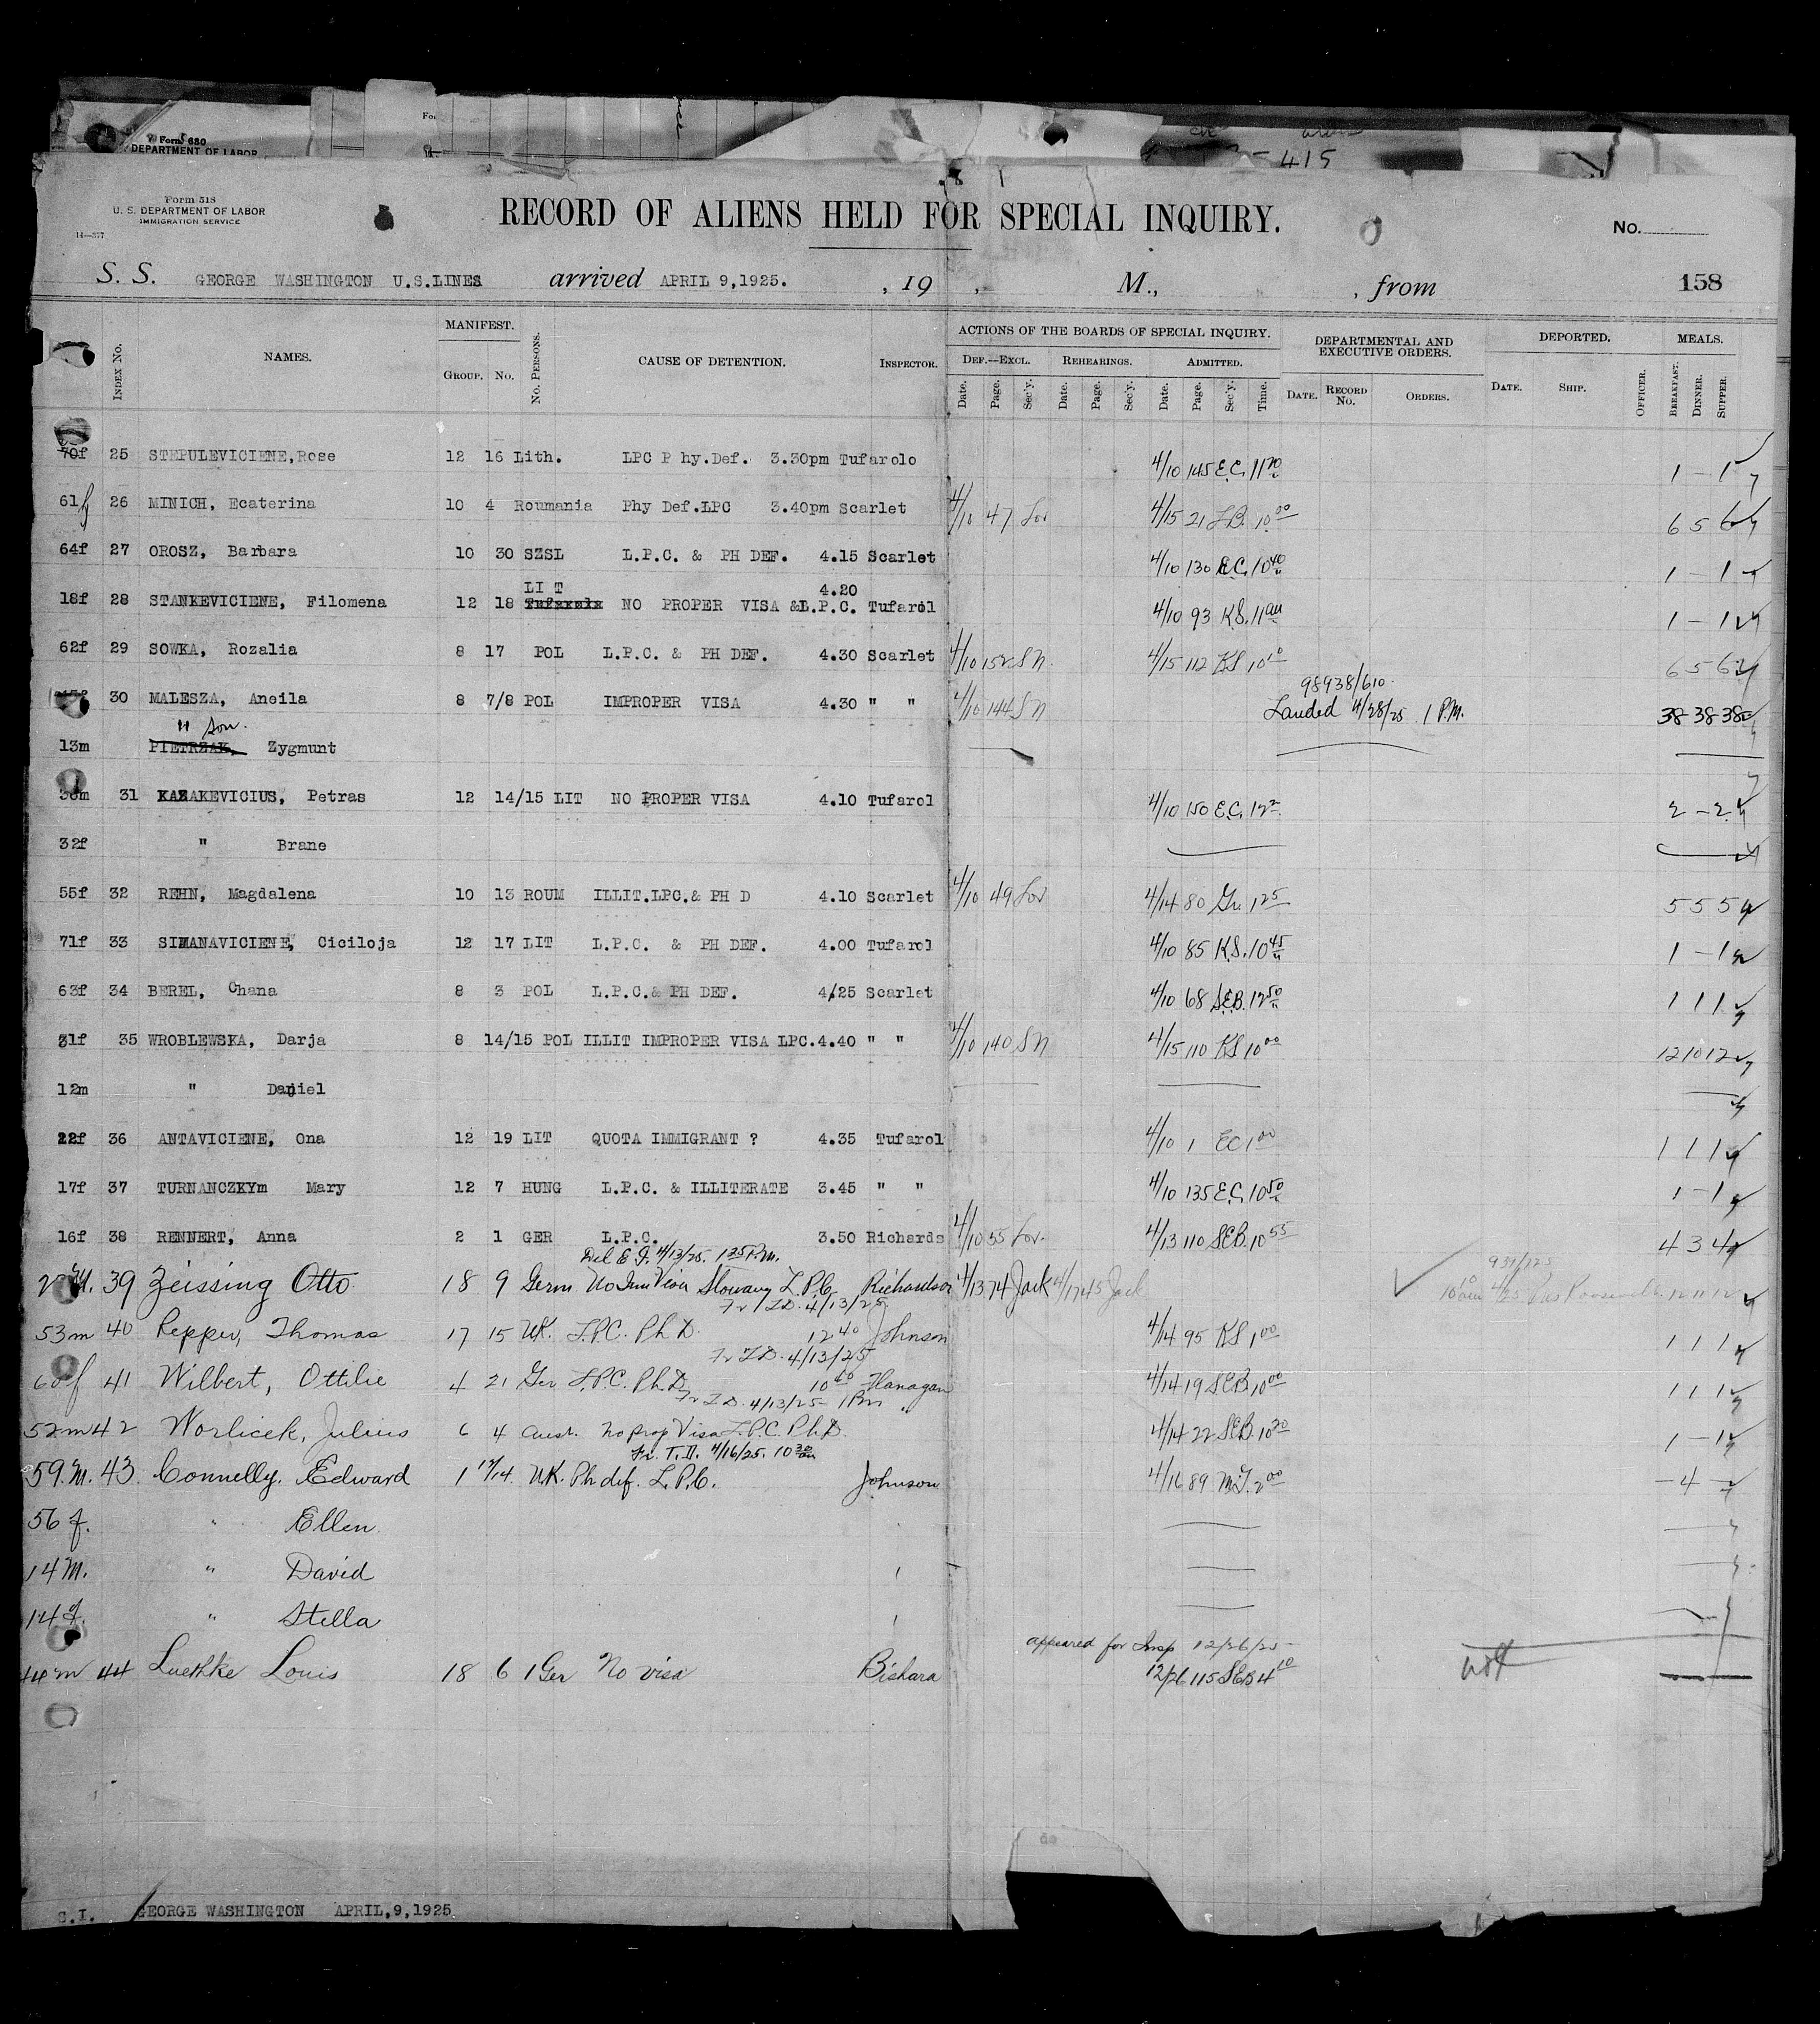 Form 680
DEPARTMENT OF LABOR
415
Form 518
U. S. DEPARTMENT OF LABOR
IMMIGRATION SERVICE
14—377
RECORD OF ALIENS HELD FOR SPECIAL INQUIRY.
No.
S. S. GEORGE WASHINGTON U.S.LINES arrived APRIL 9,1925. , 19 , M., , from 158
Index No. NAMES. MANIFEST. Group. No. No. Persons. CAUSE OF DETENTION. Inspector. ACTIONS OF THE BOARDS OF SPECIAL INQUIRY. DEPARTMENTAL AND EXECUTIVE ORDERS. DEPORTED. MEALS.
Def.—Excl. Rehearings. Admitted.
Date. Page. Sec'y. Date. Page. Sec'y. Date. Page. Sec'y. Time. Date. Record No. Orders. Date. Ship. Officer. Breakfast. Dinner. Supper.
70f 25 STEPULEVICIENE,Rose 12 16 Lith. LPC P hy.Def. 3.30pm Tufarolo 4/10 145 E.C. 11 1 - 1
61f 26 MINICH, Ecaterina 10 4 Roumania Phy Def.LPC 3.40pm Scarlet 4/10 47 Lov 4/15 21 L.B. 10 00 6 5 6
64f 27 OROSZ, Barbara 10 30 SZSL L.P.C. & PH DEF. 4.15 Scarlet 4/10 130 E.C. 10 40 1 - 1
LI T 4.20
18f 28 STANKEVICIENE, Filomena 12 18 NO PROPER VISA &L.P.C. Tufarol 4/10 93 K.S. 11 am 1 - 1
62f 29 SOWKA, Rozalia 8 17 POL L.P.C. & PH DEF. 4.30 Scarlet 4/10 152 SN. 4/15 112 KS 10 10 6 5 6
98938/610
30 MALESZA, Aneila 8 7/8 POL IMPROPER VISA 4.30 " " 4/10 144 SN Landed 4/28/25 1 P.M. 38 38 38
" Son.
13m PIETRZAK, Zygmunt
31 KAZAKEVICIUS, Petras 12 14/15 LIT NO PROPER VISA 4.10 Tufarol 4/10 150 E.C. 12 2 - 2
32f " Brane
55f 32 REHN, Magdalena 10 13 ROUM ILLIT.LPC.& PH D 4.10 Scarlet 4/10 49 Lov 4/14 80 Gr. 1 25 5 5 5
71f 33 SIMANAVICIENE, Ciciloja 12 17 LIT L.P.C. & PH DEF. 4.00 Tufarol 4/10 85 K.S. 10 45 1 - 1
63f 34 BEREL, Chana 8 3 POL L.P.C.& PH DEF. 4/25 Scarlet 4/10 68 S.E.B. 12 50 1 1 1
31f 35 WROBLEWSKA, Darja 8 14/15 POL ILLIT IMPROPER VISA LPC.4.40 " " 4/10 140 SN 4/15 110 KS 10 00 12 10 12
12m " Daniel
22f 36 ANTAVICIENE, Ona 12 19 LIT QUOTA IMMIGRANT ? 4.35 Tufarol 4/10 1 EC 1 00 1 1 1
17f 37 TURNANCZKYm Mary 12 7 HUNG L.P.C. & ILLITERATE 3.45 " " 4/10 135 E.C. 10 50 1 - 1
16f 38 RENNERT, Anna 2 1 GER L.P.C. 3.50 Richards 4/10 55 Lov. 4/13 110 SEB. 10 55 4 3 4
Del E.I. 4/13/25. 1 25 P.M.
39 Zeissing Otto 18 9 Germ. No Imm Visa Stoway L.P.C. Richardson 4/13 74 Jack 4/17 45 Jack 10 10 am 4/25 Pres Roosevelt 12 11 12
Fr T.D. 4/13/25
53m 40 Pepper, Thomas 17 15 UK. L.P.C. Ph.D. 12 40 Johnson 4/14 95 KS 1 00 1 1 1
Fr T.D. 4/13/25
60f 41 Wilbert, Ottilie 4 21 Ger L.P.C. Ph.D. 10 40 Flanagan 4/14 19 SEB 10 00 1 1 1
Fr T.D. 4/13/25 1 Pm "
52m 42 Worlicek, Julius 6 4 Aust. no prop Visa L.P.C. Ph.D. 4/14 22 SEB. 10 20 1 - 1
Fr. T.D. 4/16/25. 10 30 am
59.M. 43. Connelly. Edward 1 UK. Ph def. L.P.C. Johnson 4/16 89 M.J. 2 00 - 4 -
56 f. " Ellen
14 M. " David
14 f. " Stella
appeared for Insp 12/26/25
44m 44 Luethke Louis 18 6 1 Ger No visa Bishara 12/26 115 SEB 4 10
S.I. GEORGE WASHINGTON APRIL,9,1925